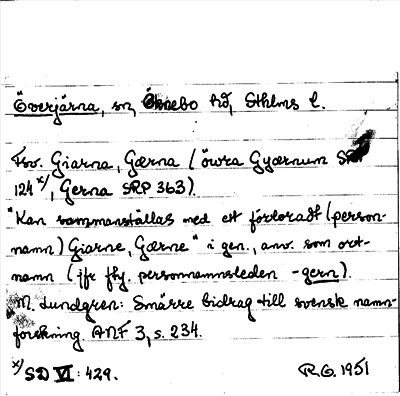 Överjärna, sn, Öknebo hd, Sthlms l.
Fsv. Giarna, Gærna (öwra Gyærnum SRP
124 x), Gerna SRP 363).
"Kan sammanställas med ett förlorat (person-
namn) Giarne, Gærne" i gen., anv. som ort-
namn (jfr fhy. personnamnsleden -gern).
M. Lundgren: Smärre bidrag till svensk namn-
forskning ANF 3, s. 234.
x) SD VI: 429.
R.G. 1951